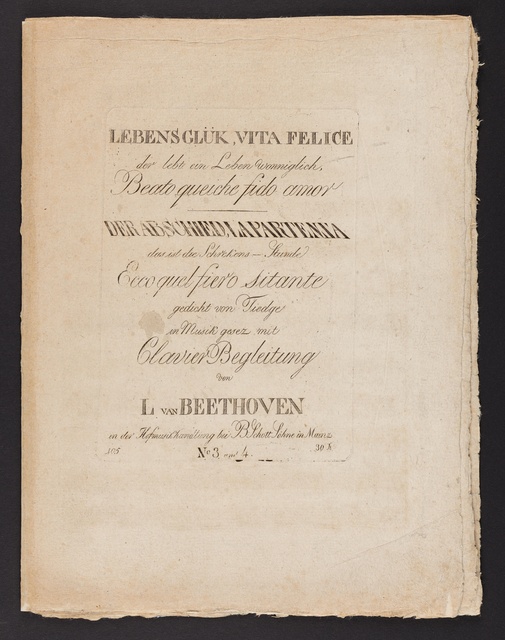 LEBENSGLÜK, VITA FELICE
der lebt ein Leben wonniglich,
Beato quei che fido amor
DER ABSCHIED, LA PARTENZA
das ist die Schrekens-Stunde
Ecco quel fiero istante
gedicht von Tiedge
in Musik gesez mit
Clavier Begleitung
von
L. VAN BEETHOVEN
in der Hofmusikhandlung bei B. Schott Söhne in Mainz
No. 3 und 4.